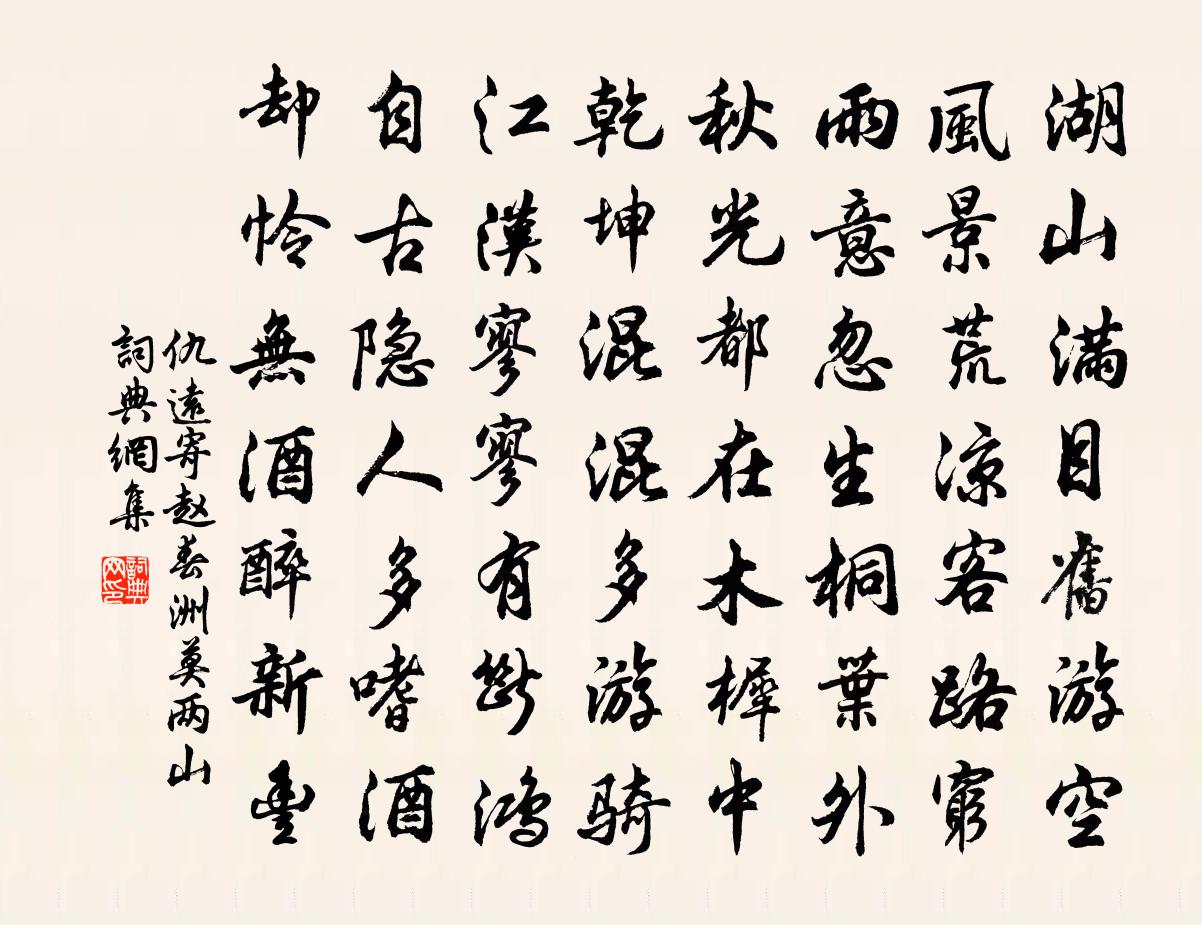 湖山滿目舊游空
風景荒涼客路窮
雨意忽生桐葉外
秋光都在木樨中
乾坤混混多游騎
江漢寥寥有斷鴻
自古隐人多嗜酒
却怜無酒醉新豊
仇遠寄赵春洲莫两山
詞典網集
詞典网印